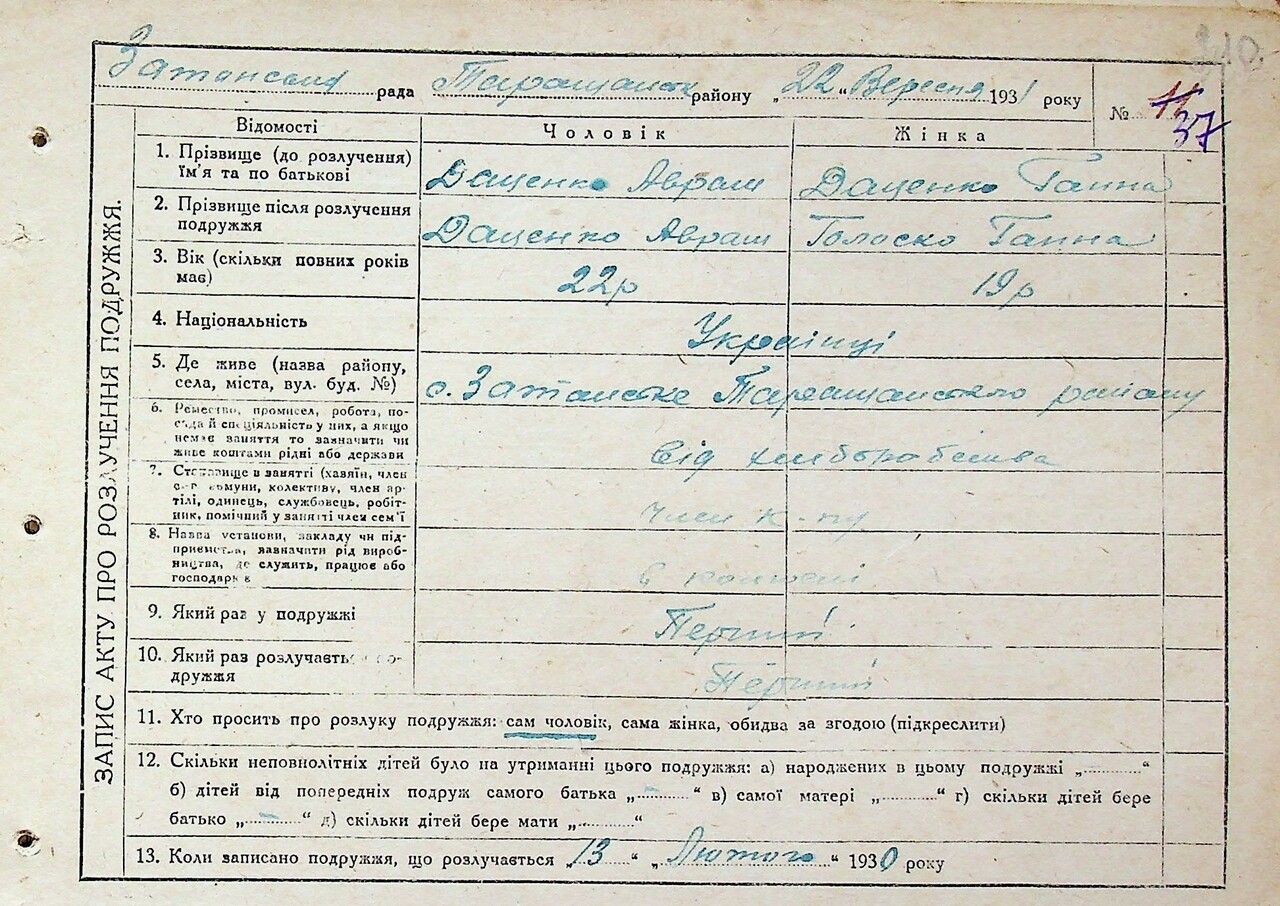 340.
Затонська рада Таращанськ району „22“ Вересня 1931 року
№ 11
37
ЗАПИС АКТУ ПРО РОЗЛУЧЕННЯ ПОДРУЖЖЯ.
Відомості Чоловік Жінка
1. Прізвище (до розлучення) ім'я та по батькові Даценко Аврам Даценко Ганна
2. Прізвище після розлучення подружжя Даценко Аврам Голоско Ганна
3. Вік (скільки повних років має) 22р 19р
4. Національність Українці
5. Де живе (назва району, села, міста, вул. буд. №) с. Затонське Таращанського району
6. Ремество, промисел, робота, посада й спеціяльність у них, а якщо немає заняття то зазначити чи живе коштами рідні або держави від хліборобства
7. Становище в занятті (хазяїн, член с.-г. комуни, колективу, член артілі, одинець, службовець, робітник, помічний у занятті член сем'ї члени к-пу
8. Назва установи, закладу чи підприємства, зазначити рід виробництва, де служить, працює або господарює в колгоспі
9. Який раз у подружжі Перший
10. Який раз розлучається подружжя Перший
11. Хто просить про розлуку подружжя: сам чоловік, сама жінка, обидва за згодою (підкреслити)
12. Скільки неповнолітніх дітей було на утриманні цього подружжя: а) народжених в цьому подружжі „............“
б) дітей від попередніх подруж самого батька „-“ в) самої матері „............“ г) скільки дітей бере
батько „-“ д) скільки дітей бере мати „............“
13. Коли записано подружжя, що розлучається „13“ „Лютого“ 1930 року